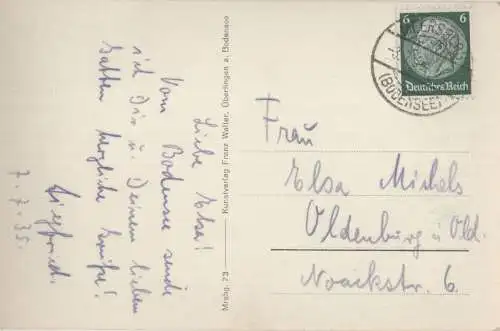 Liebe Elsa!
Vom Bodensee sende
ich Dir u. Deinem lieben
Gatten herzliche Grüße!
Siegfried.
7.7.35.
Mrsbg. 73 — Kunstverlag Franz Walter, Überlingen a. Bodensee
6 6
Deutsches Reich
(BODENSEE)
Frau
Elsa Michels
Oldenburg i/ Old.
Noackstr. 6.